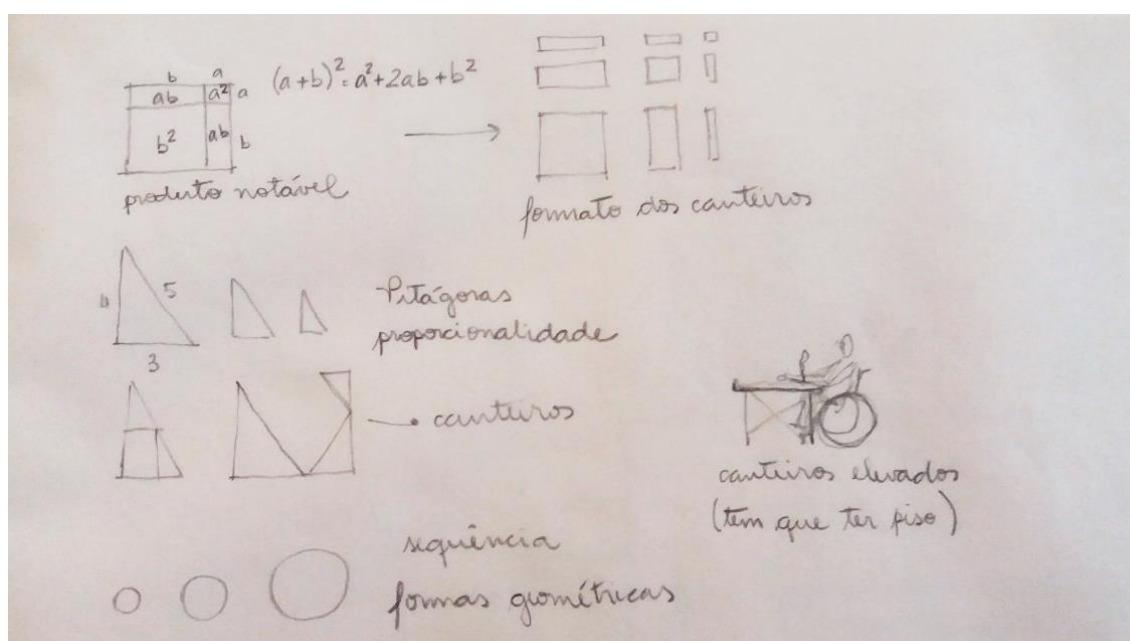 b a
ab a² a
b² ab b
(a+b)² = a²+2ab+b²
produto notável
formato dos canteiros
4 5
3
Pitágoras
proporcionalidade
canteiros
canteiros elevados
(tem que ter piso)
sequência
formas geométricas